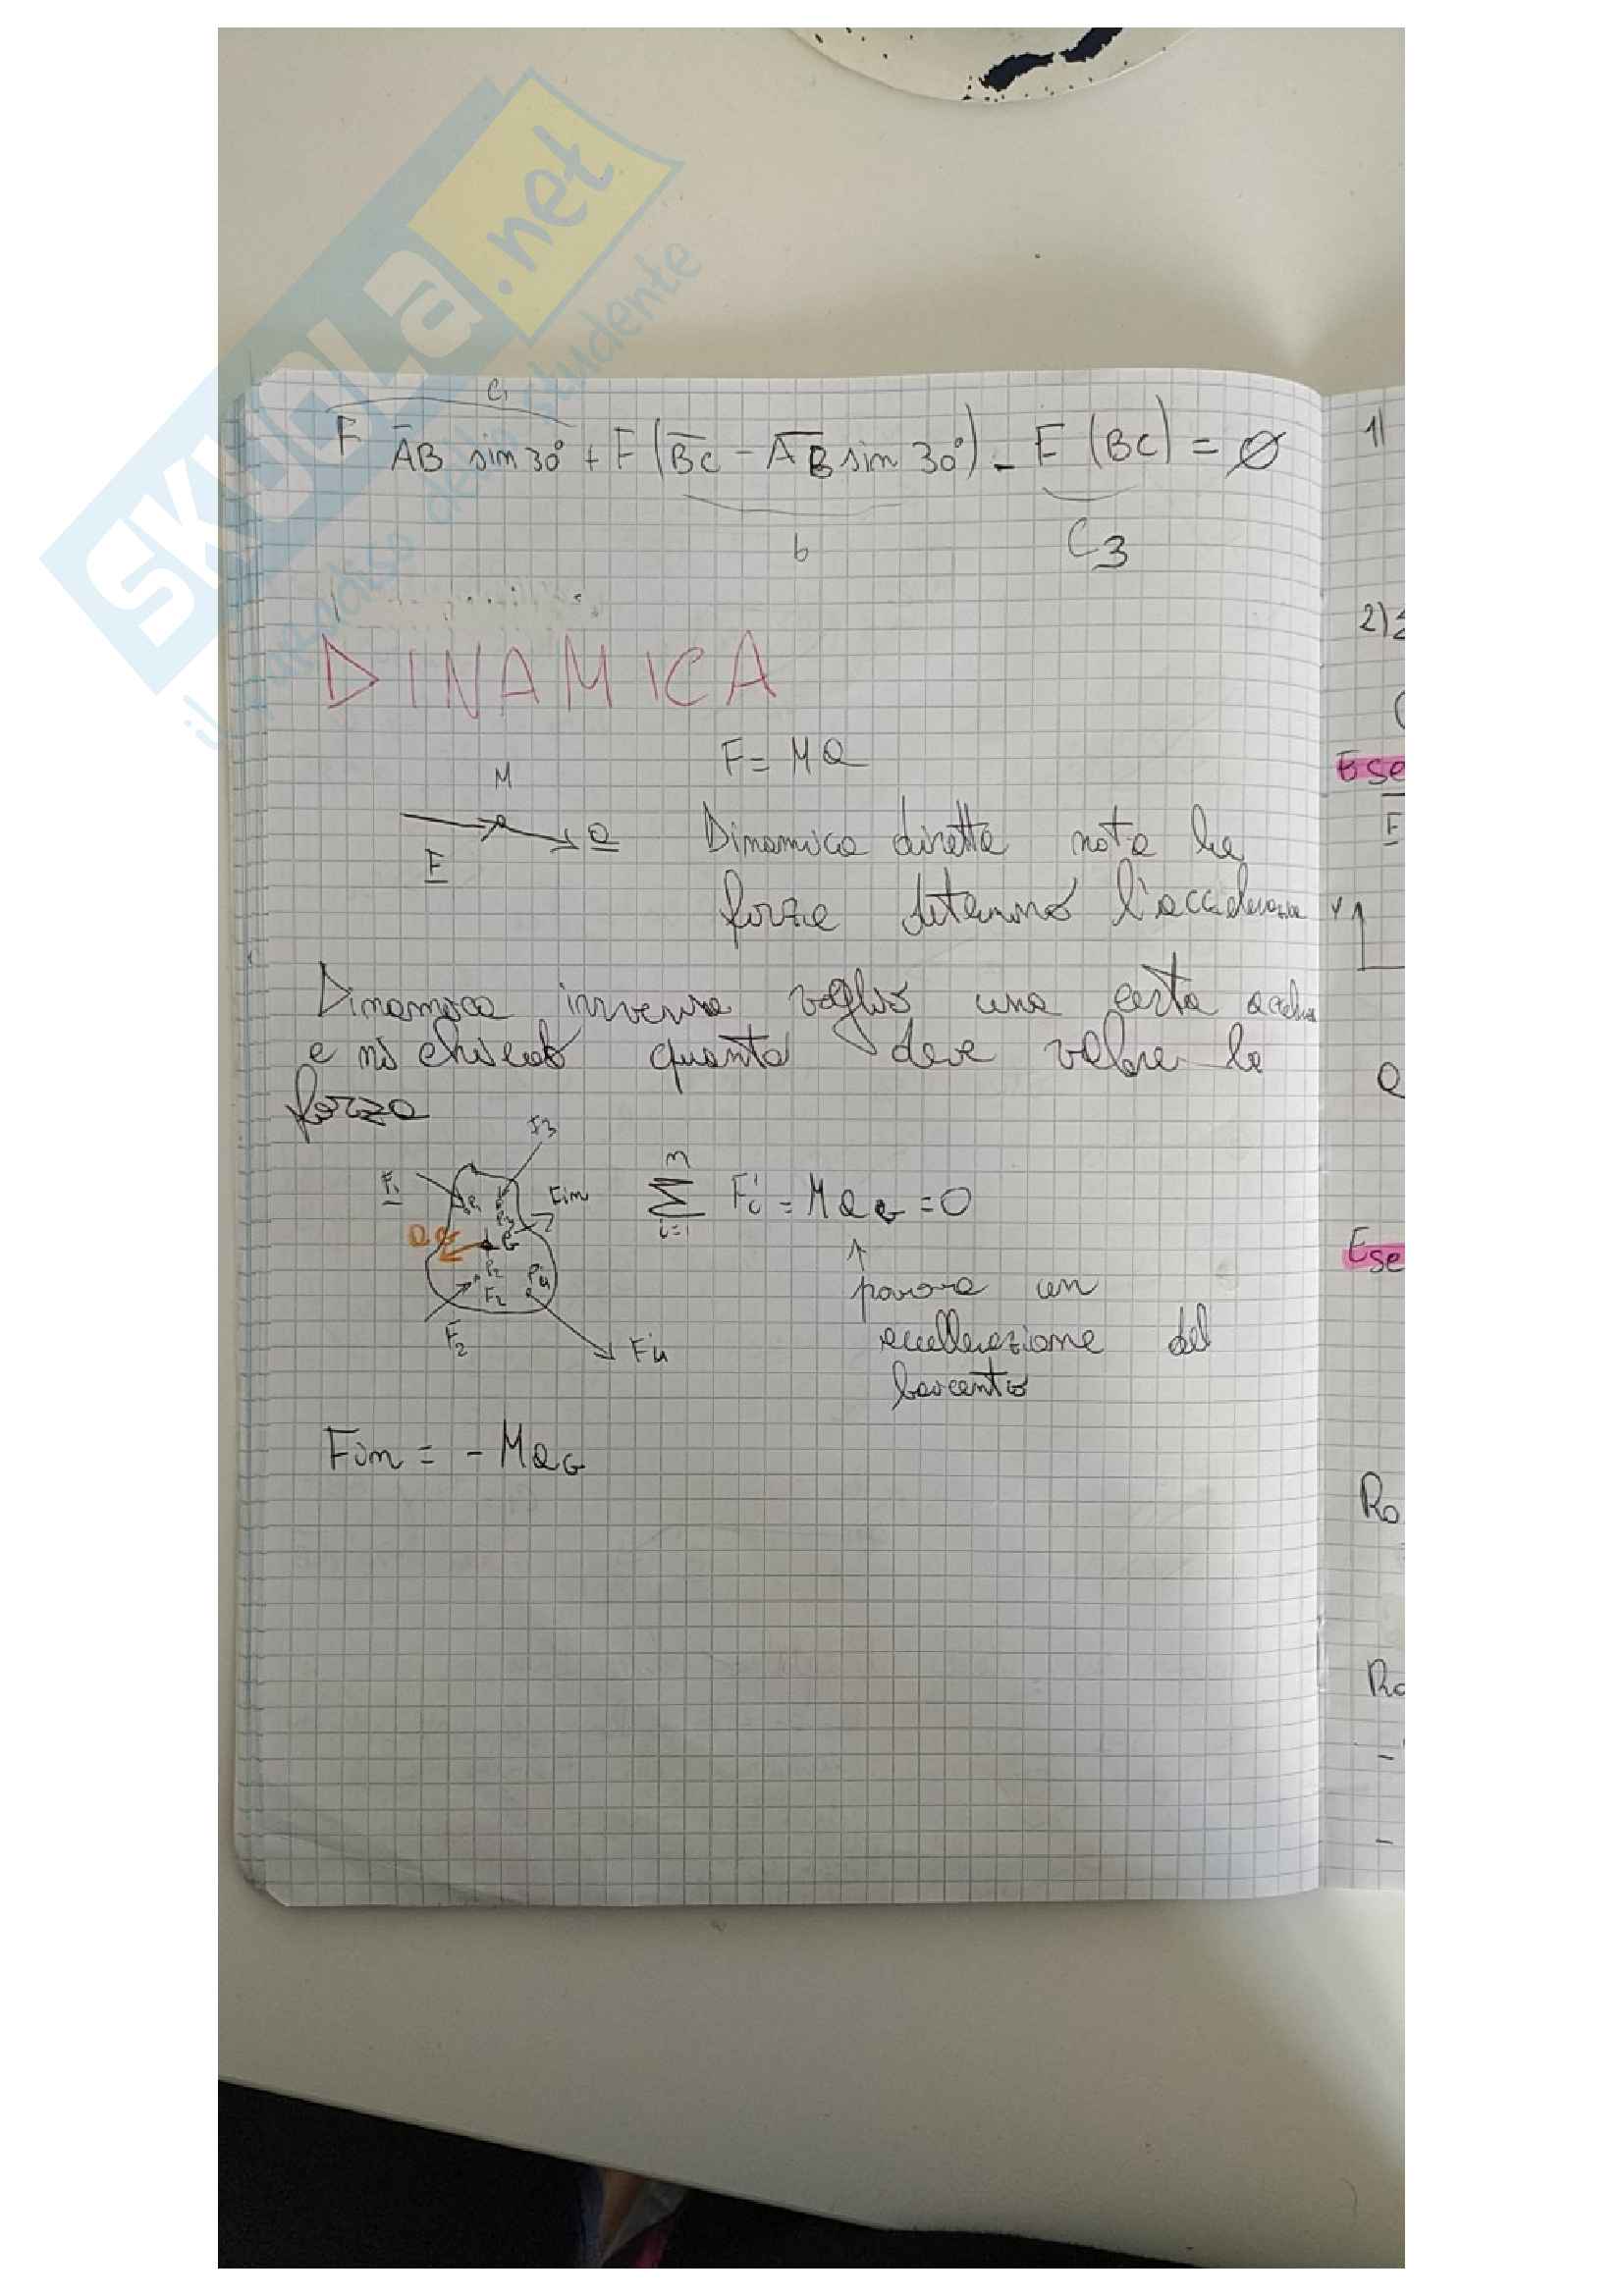 SKUOLA.net
il paradiso dello studente
C1
F AB sin 30° + F (BC - AB sin 30°) - F (BC) = ∅
b
C3
DINAMICA
F = Ma
M
F
a
Dinamica diretta nota la
forza determino l'accelerazione
Dinamica inversa voglio una certa accelera
e mi chiedo quanto deve valere la
forza
F3
F1
Fin
aG
G
P2
F2
P4
F2
F4
n
Σ Fi = MaG = 0
i=1
↑
accellerazione del
baricentro
Fin = - MaG
1)
2)
Ese
F
y
a
Ese
Ro
Ro
-
-